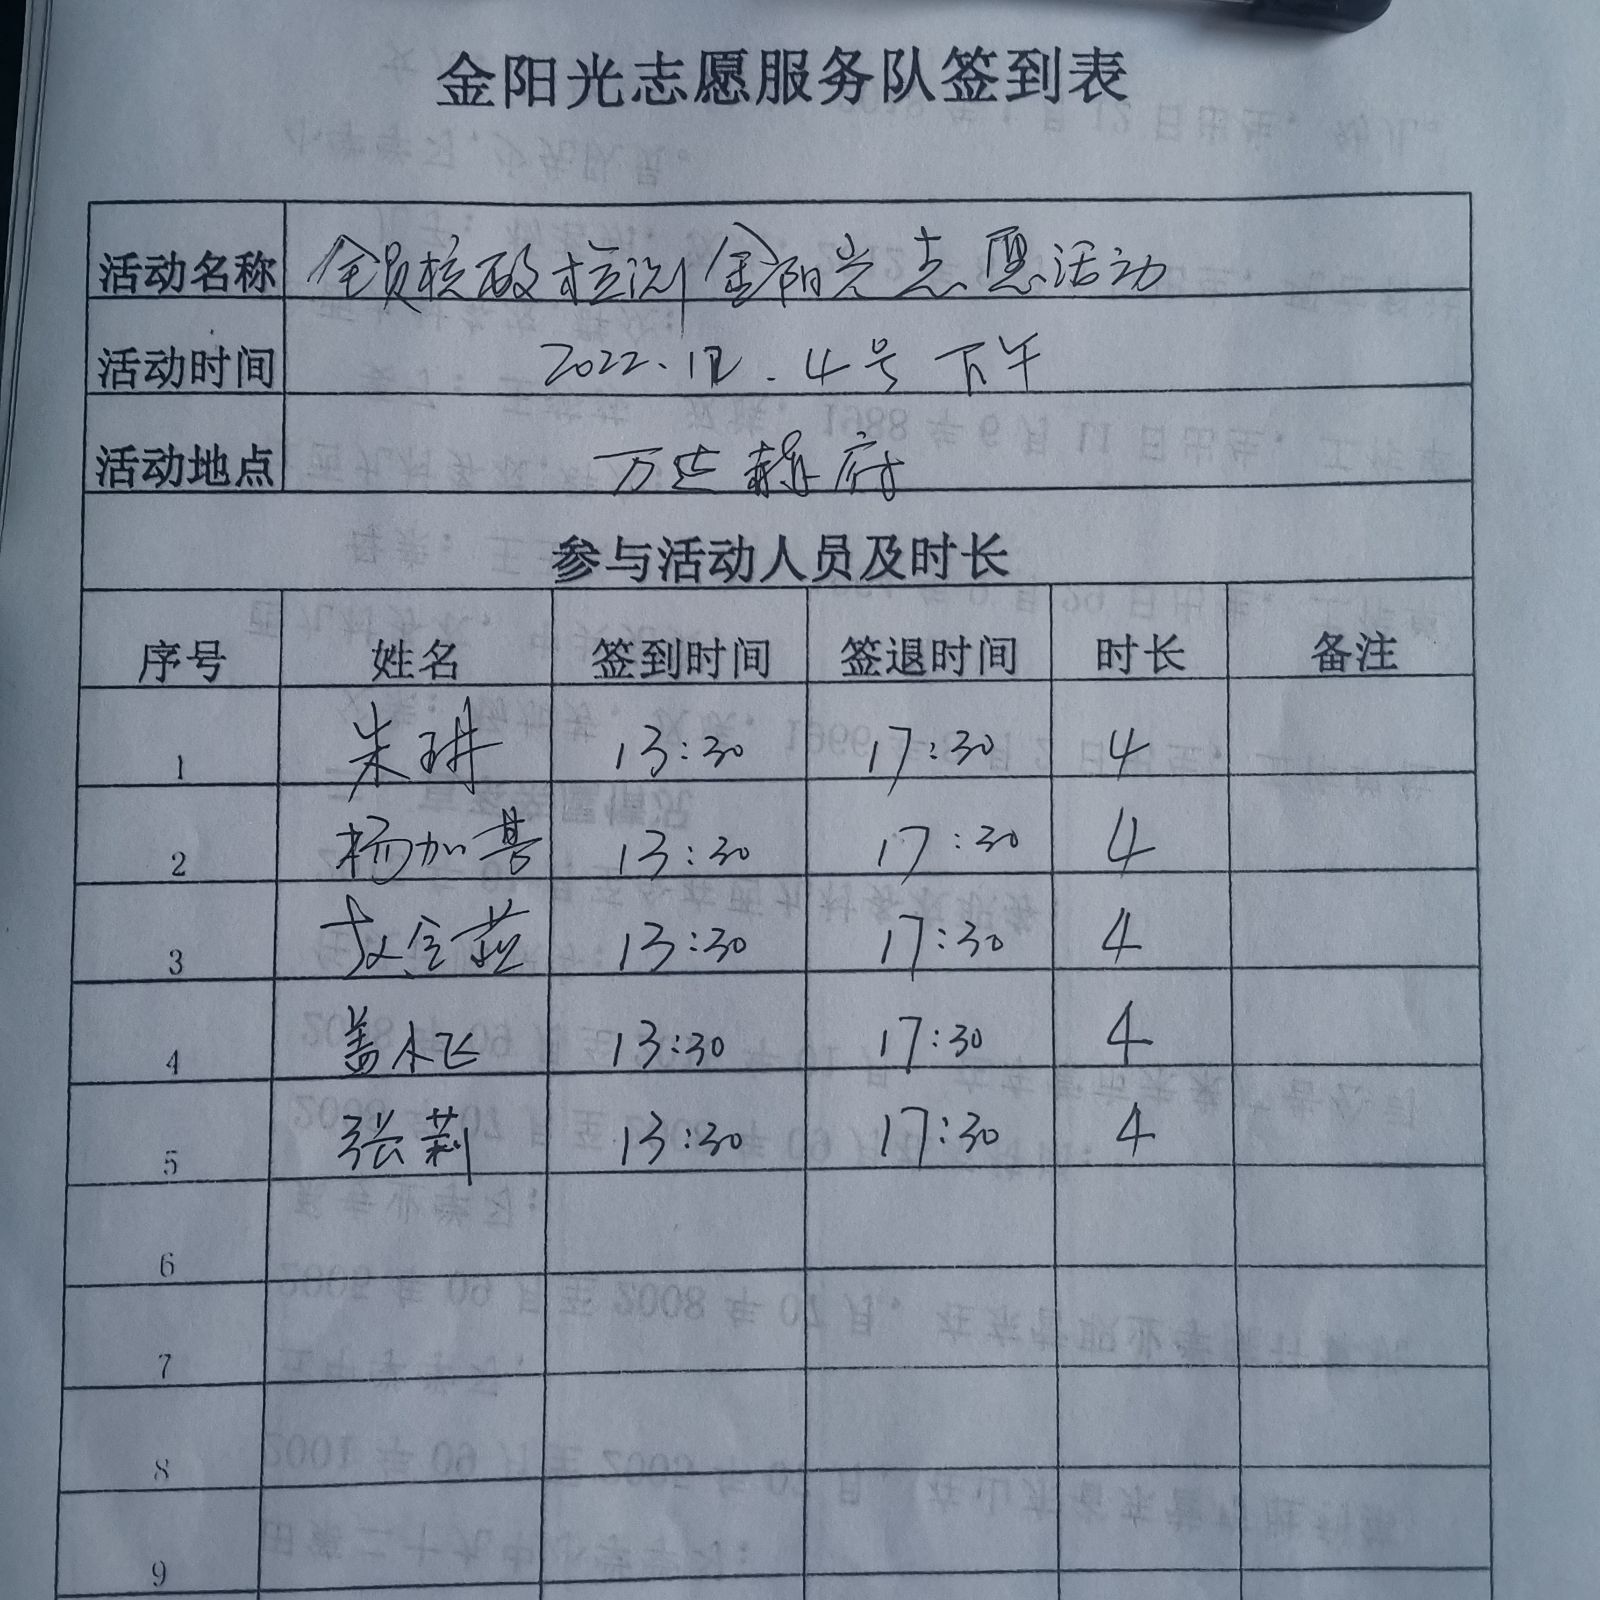 金阳光志愿服务队签到表
活动名称 全员核酸检测金阳光志愿活动
活动时间 2022.12.4号下午
活动地点 万达赫府
参与活动人员及时长
序号 姓名 签到时间 签退时间 时长 备注
1 朱琳 13:30 17:30 4
2 杨加 13:30 17:30 4
3 13:30 17:30 4
4 盖小飞 13:30 17:30 4
5 张莉 13:30 17:30 4
6
7
8
9